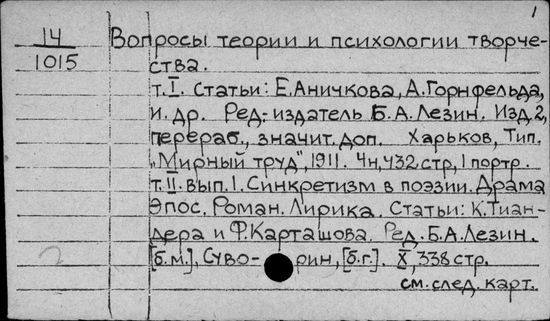 1
14 Вопросы теории и психологии творче-
1015 ства.
т. I. Статьи: Е. Аничкова, А. Горнфельда,
и. др. Ред.-издатель Б. А. Лезин. Изд. 2,
перераб., значит. доп. Харьков, Тип.
„Мирный труд", 1911. 4н, 432 стр, 1 портр.
т. II. вып. 1. Синкретизм в поэзии. Драма
Эпос. Роман. Лирика. Статьи: К. Тиан-
дера и Ф. Карташова. Ред. Б. А. Лезин.
2 [б.м.], Суво- рин, [б.г.]. X, 338 стр.
см. след. карт.